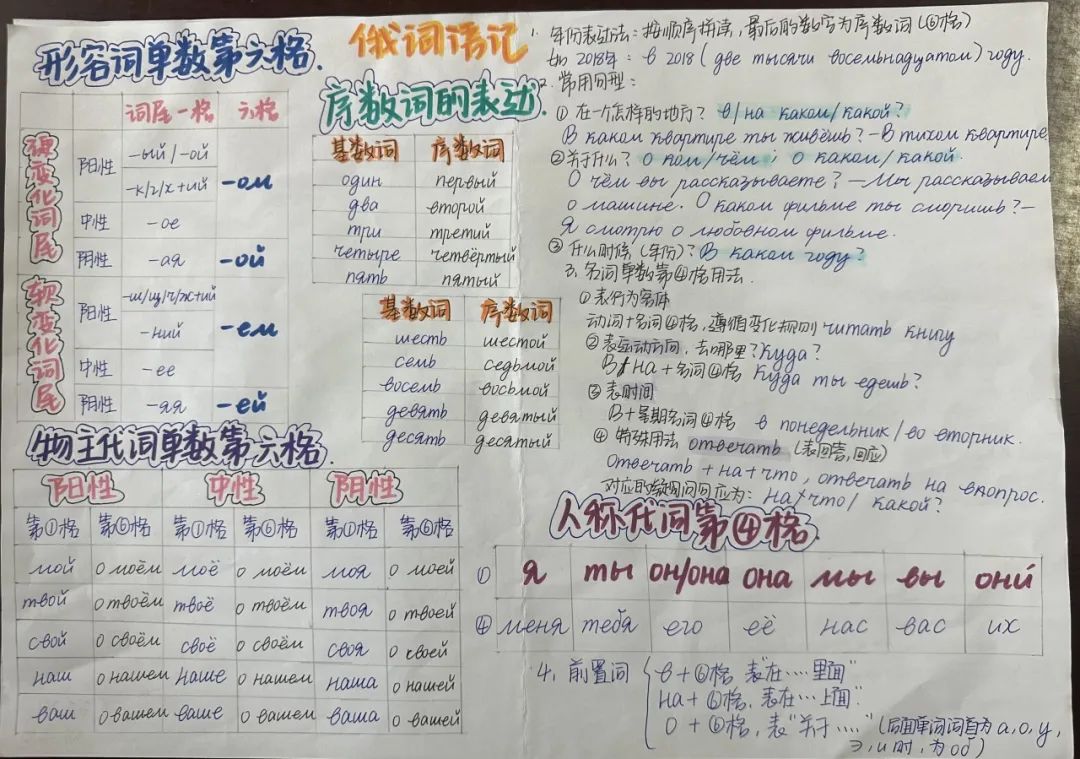 俄词语记
形容词单数第六格.
词尾一格 六格
硬变化词尾
阳性 -ый/-ой -ом
-к/г/х+ий
中性 -ое
阳性 -ая -ой
软变化词尾
阳性 -ш/щ/ч/ж+ий -ем
-ний
中性 -ее
阳性 -яя -ей
序数词的表述.
基数词 序数词
один первый
два второй
три третий
четыре четвёртый
пять пятый
基数词 序数词
шесть шестой
семь седьмой
восемь восьмой
девять девятый
десять десятый
物主代词单数第六格.
阳性 中性 阴性
第①格 第⑥格 第①格 第⑥格 第①格 第⑥格
мой о моём моё о моём моя о моей
твой о твоём твоё о твоём твоя о твоей
свой о своём своё о своём своя о своей
наш о нашем наше о нашем наша о нашей
ваш о вашем ваше о вашем ваша о вашей
1. 年份表达法：按顺序拼读，最后的数字为序数词(⑥格)
如 2018年：в 2018 (две тысячи восемьнадцатом) году.
2. 常用句型：
① 在一个怎样的地方？ в/на каком/какой?
В каком квартире ты живёшь? - В тихом квартире
② 关于什么？ о ком/чём; о каком/какой.
О чём вы рассказываете? - Мы рассказываем
о машине. О каком фильме ты сморишь? -
Я смотрю о любовном фильме.
③ 什么时候(年份)？ В каком году?
3. 名词单数第④格用法.
① 表行为客体
动词+名词④格，遵循变化规则 читать книгу
② 表运动方向，去哪里？ Куда?
В/на+名词④格 Куда ты едешь?
③ 表时间
В+星期名词④格 в понедельник/во вторник.
④ 特殊用法 отвечать (表回答,回应)
Отвечать + на + что, отвечать на впопрос.
对应的疑问句应为： на+что/какой?
人称代词第④格.
① я ты он/она она мы вы они
④ меня тебя его её нас вас их
4. 前置词
в+⑥格 表"在…里面"
на+⑥格，表在…上面"
о+⑥格，表"关于……" (后面单词词首为а,о,у,
э,и时，为об)